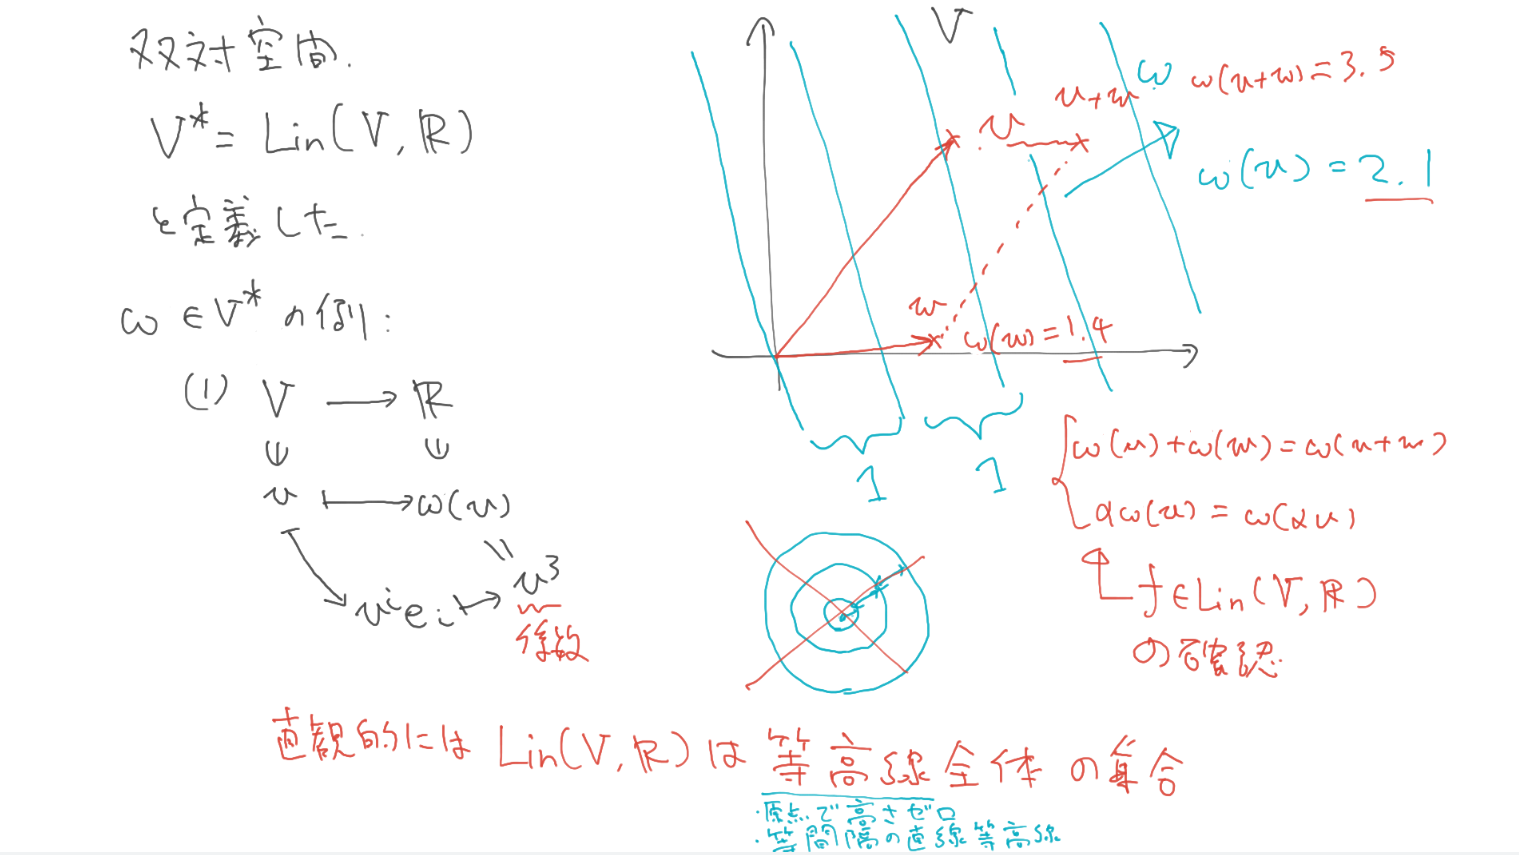 双対空間.
V* = Lin(V, ℝ)
と定義した.
ω ∈ V* の例:
(1) V → ℝ
v ↦ ω(v)
v^i e_i ↦ v^3
係数
V
ω
ω(v+w) = 3.5
v+w
v
ω(v) = 2.1
w
ω(w) = 1.4
1
1
ω(v) + ω(w) = ω(v+w)
αω(v) = ω(αv)
f ∈ Lin(V, ℝ)
の確認
直観的には Lin(V, ℝ) は 等高線全体 の集合
・原点で高さゼロ
・等間隔の直線等高線